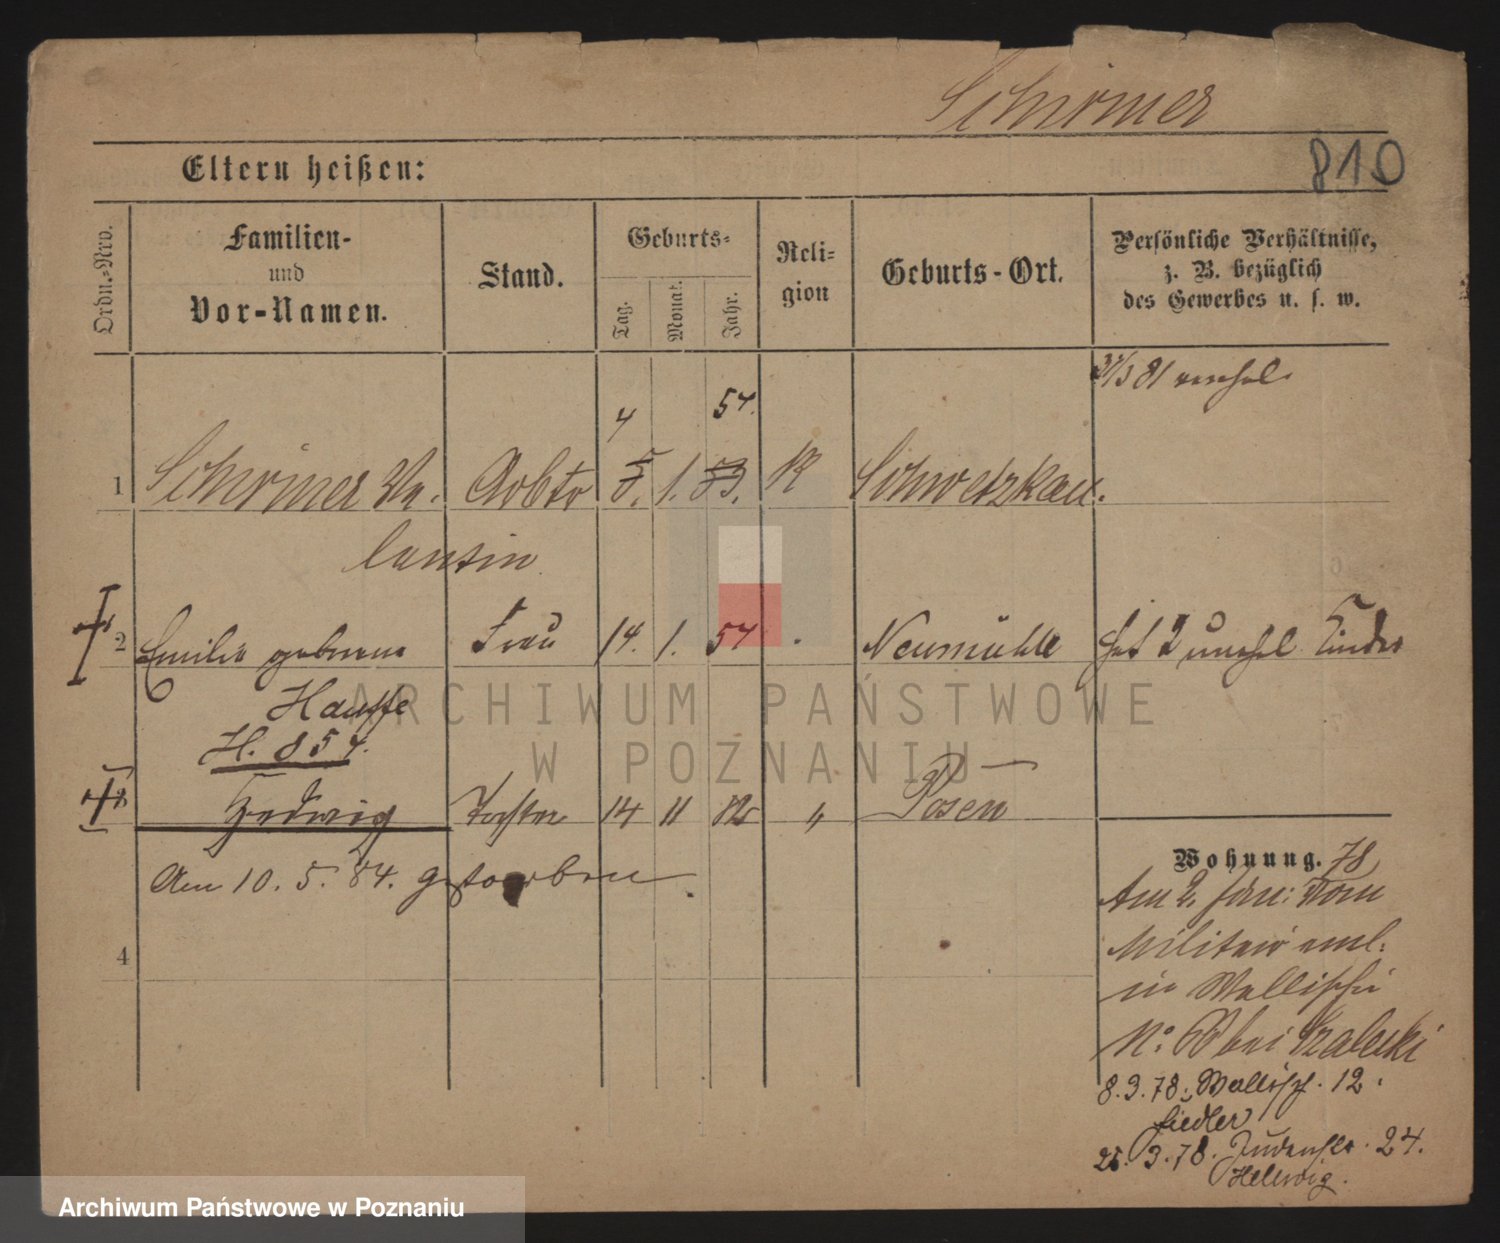 Schirmer
810
Eltern heißen:
Ordn.-Nro.
Familien-
und
Vor-Namen.
Stand.
Geburts-
Tag.
Monat.
Jahr.
Reli-
gion
Geburts-Ort.
Persönliche Verhältnisse,
z. B. bezüglich
des Gewerbes u. s. w.
81 verehel.
4 54.
1 Schirmer Va- Arbtr 5. 1. 53. K Schwetzkau.
lentin
2 Emilie geborene Frau 14. 1. 54 Neumühle hat 2 unehel. Kinder
Hauffe
H. 854.
3 Hedwig Tochter 14 11 82 " Posen
Am 10. 5. 84. gestorben
4
Wohnung. 78
Am 2. Jan: vom
Militair entl.
in Wallischei
No: bei
8.3.78. Wallisch. 12.
Fiedler
25.3.78. Judenstr. 24.
Hellwig.
ARCHIWUM PAŃSTWOWE
W POZNANIU
Archiwum Państwowe w Poznaniu